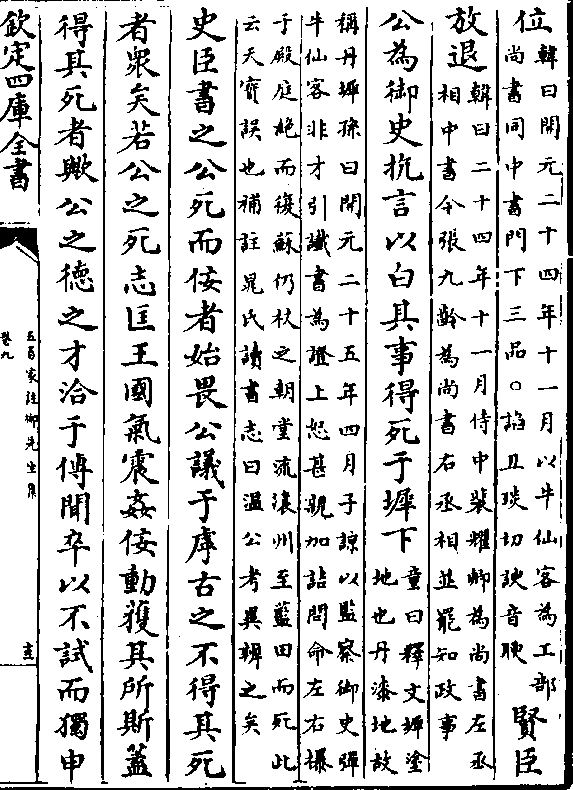 位韓曰開元二十四年十一月以牛仙客為工部尚書同中書門下三品○諂丑琰切諛音腴賢臣
放退韓曰二十四年十一月侍中裴耀卿為尚書左丞相中書令張九齡為尚書右丞相並罷知政事
公為御史抗言以白其事得死于墀下童曰釋文墀塗地也丹漆地故
稱丹墀孫曰開元二十五年四月子諒以監察御史彈牛仙客非才引讖書為證上怒甚親加詰問命左右㩧
于殿庭絶而復蘇仍杖之朝堂流瀼州至藍田而死此云天寶誤也補註晁氏讀書志曰溫公考異辨之矣
史臣書之公死而佞者始畏公議于虖古之不得其死
者衆矣若公之死志匡王國氣震姦佞動獲其所斯蓋
得其死者歟公之德之才洽于傅聞卒以不試而獨申
欽定四庫全書
五百家註柳先生集
卷九